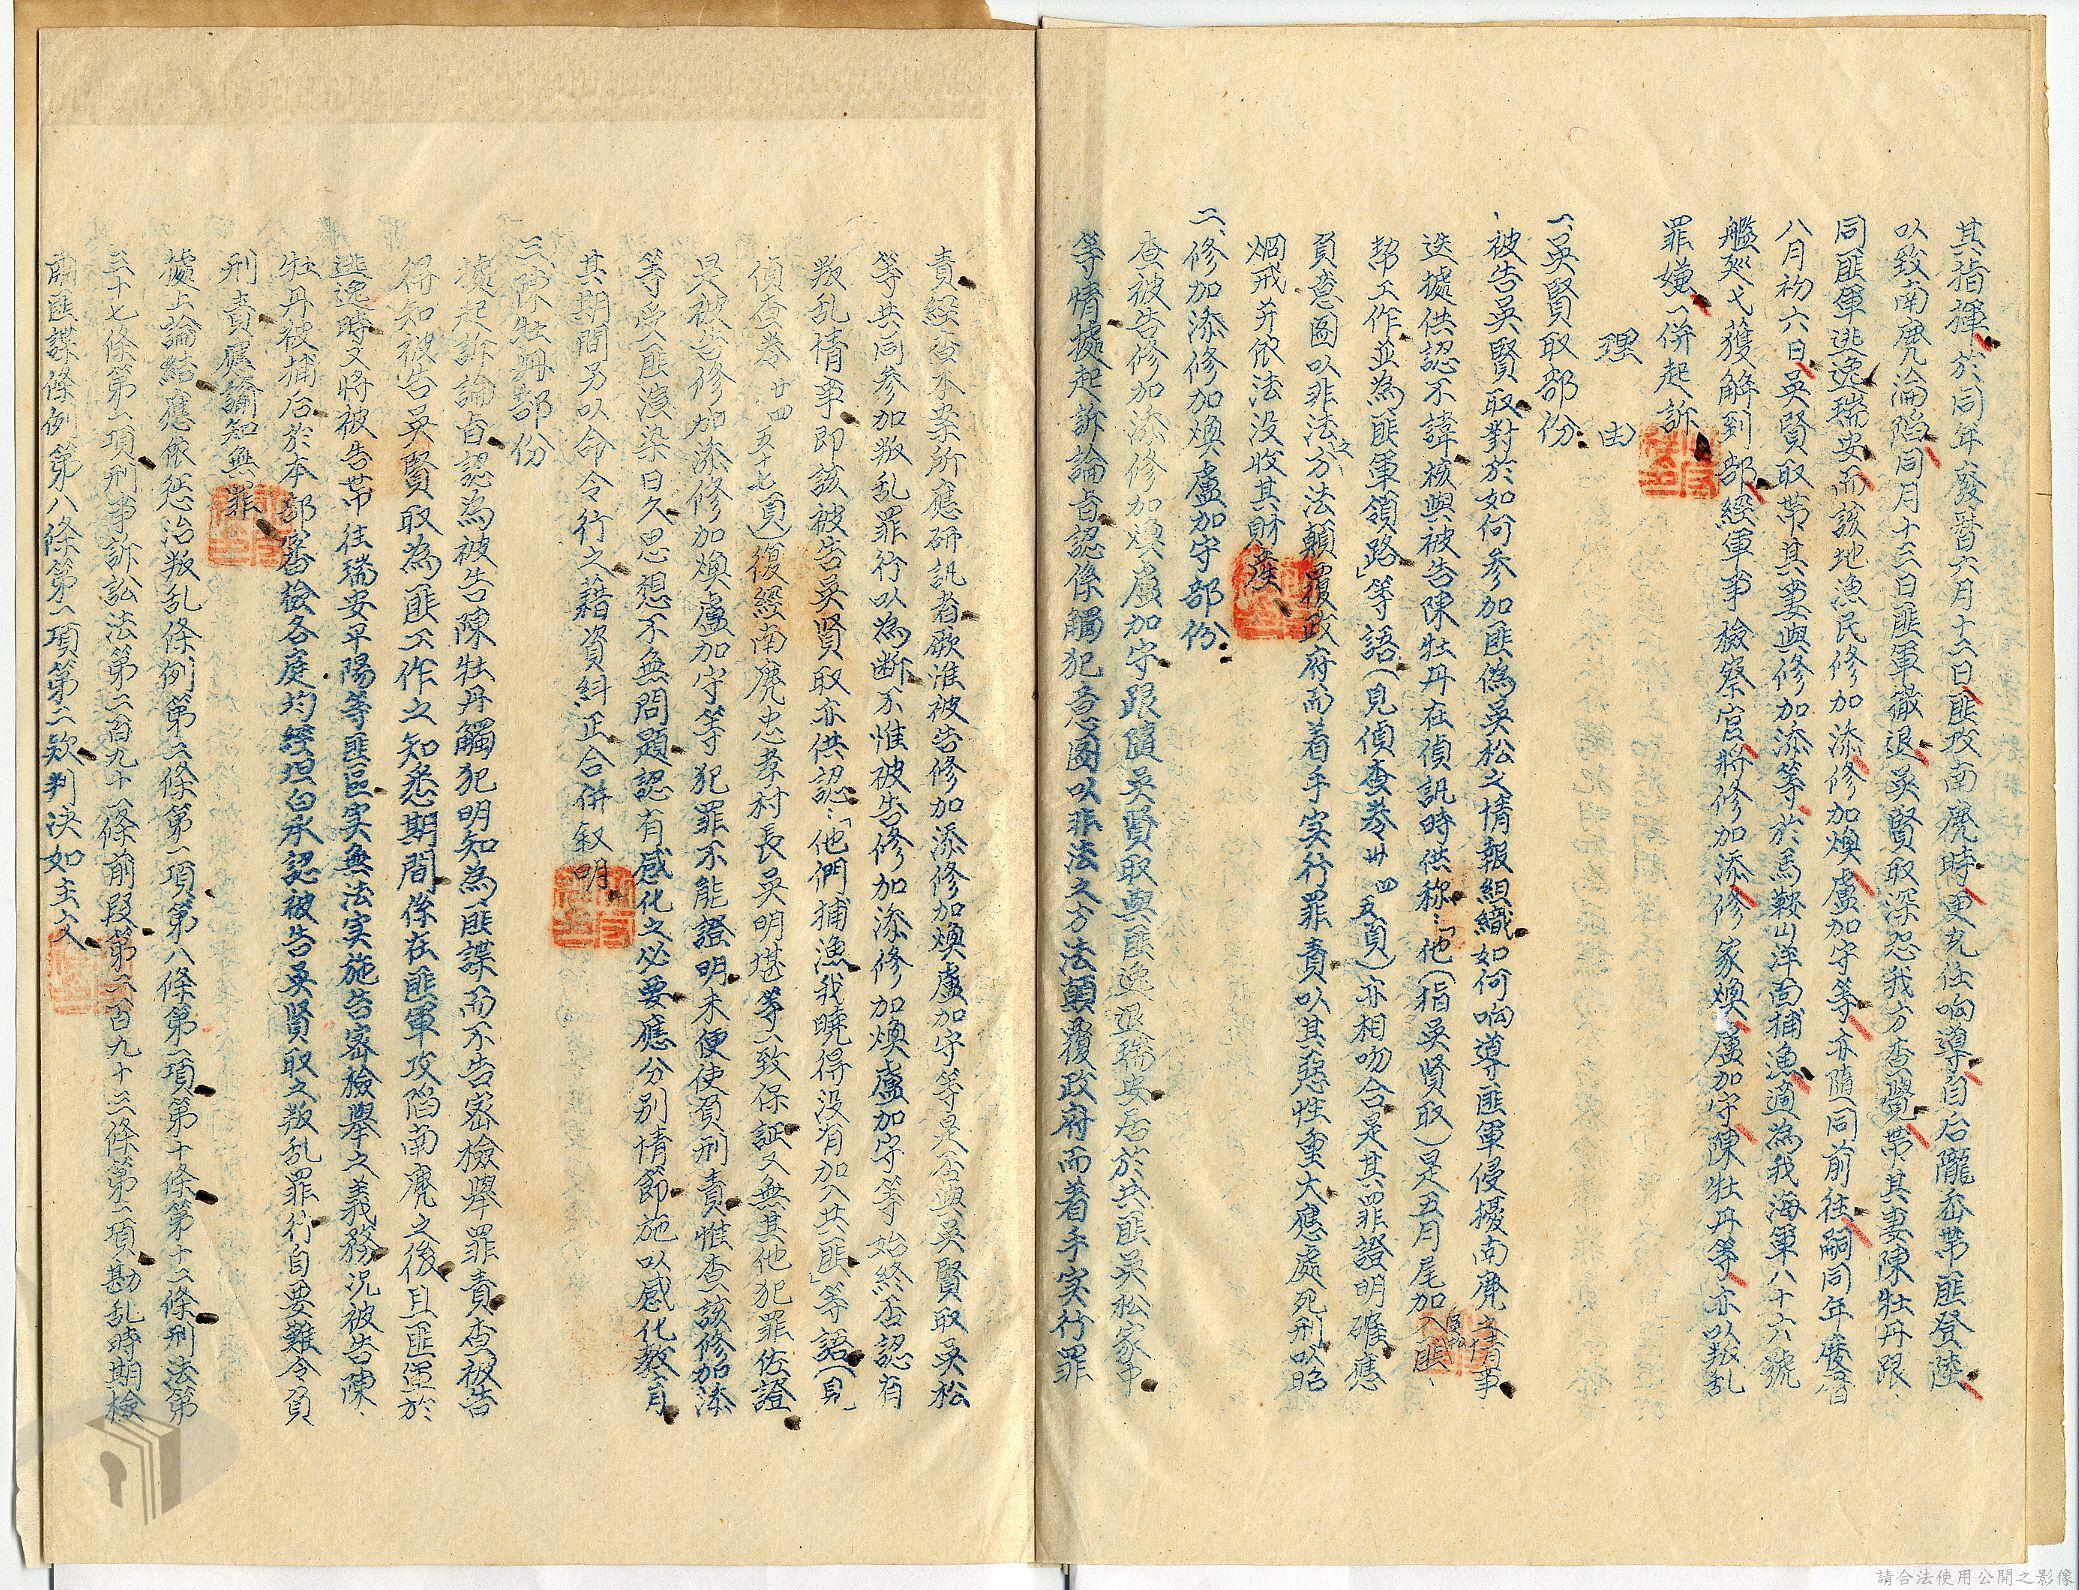 其指揮於同年廢曆六月十二日匪攻南麂時更充任响導自后隴岙帶匪登陸
以致南麂淪陷同月十三日匪軍撤退吳賢取深怨我方查覺帶其妻陳牡丹跟
同匪軍逃逸瑞安而該地漁民修加添修加煥盧加守等亦隨同前往嗣同年廢曆
八月初六日吳賢取帶其妻與修加添等於馬鞍山洋面捕漁適為我海軍八十六號
艦巡弋獲解到部經軍事檢察官將修加添修家煥盧加守陳牡丹等亦以叛乱
罪嫌一併起訴
理由
一、吳賢取部份:
被告吳賢取對於如何參加匪偽吳松之情報組織如何响導匪軍侵擾南麂之事
迭據供認不諱核與被告陳牡丹在偵訊時供称:「他(指吳賢取)是五月尾加入匪、
幫工作並為匪軍領路」等語(見偵查卷廿四五頁)亦相吻合是其罪證明確應
負意圖以非法之方法顛覆政府而着手实行罪責以其惡性重大應處死刑以昭
炯戒并依法沒收其財產
二、修加添修加煥盧加守部份:
查被告修加添修加煥盧加守跟隨吳賢取與匪逸退瑞安居於共匪吳松家中
等情據起訴論旨認係觸犯意图以非法之方法顛覆政府而着手实行罪
責經查本案所應研訊者厥淮被告修加添修加煥盧加守等是否與吳賢取吳松
等共同參加叛乱罪行以為斷不惟被告修加添修加煥盧加守等始終否認有
叛乱情事即該被告吳賢取亦供認:「他們捕漁我曉得没有加入共匪」等語(見
偵查卷廿四五十七頁)復經南麂忠孝村長吳明堪等一致保証又無其他犯罪佐證
是被告修加添修加煥盧加守等犯罪不能證明未便使負刑責惟查該修加添
等受匪浸染日久思想不無問題認有感化之必要應分別情節施以感化教育
其期間另以命令行之藉資糾正合併敘明
三、陳牡丹部份
據起訴論旨認為被告陳牡丹觸犯明知為匪諜而不告密檢舉罪責查被告
得知被告吳賢取為匪工作之知悉期間係在匪軍攻陷南麂之後且匪運於
逃逸時又將被告帶往瑞安平陽等匪區实無法实施告密檢舉之義務況被告陳
牡丹被捕后於本部審檢各庭均經坦白承認被告吳賢取之叛乱罪行自要難令負
刑責應諭知無罪
據上論結應依懲治叛乱條例第二條第一項第八條第一項第十條第十二條刑法第
三十七條第一項刑事訴訟法第二百九十一條前段第二百九十三條第一項勘乱時期檢
肅匪諜條例第八條第一項第二欵判決如主文
請合法使用公開之影像